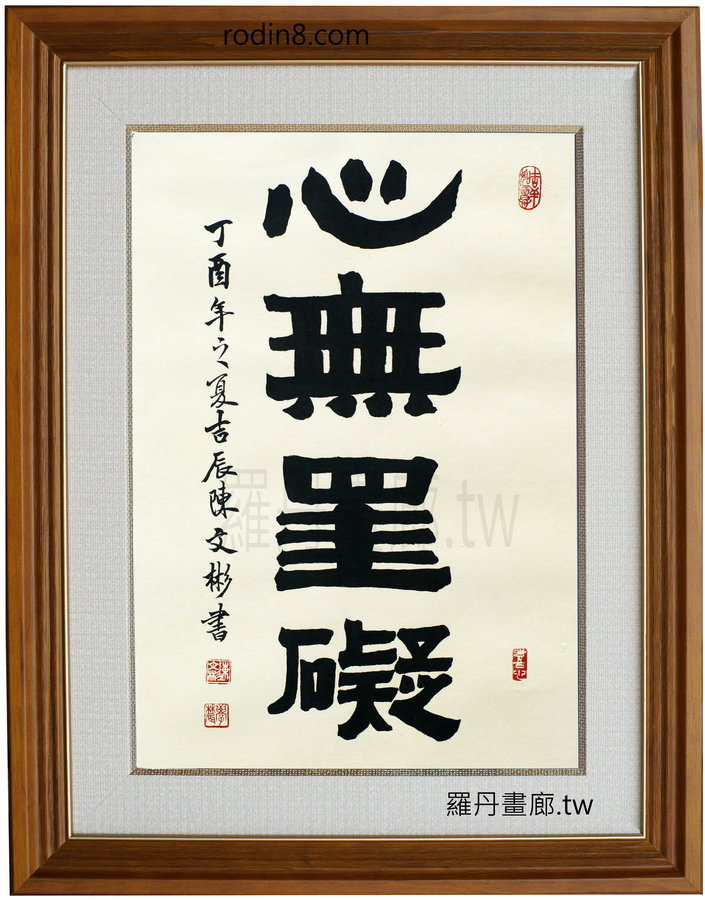 rodin8.com
心無罣礙
丁酉年之夏吉辰陳文彬書
羅丹畫廊.tw
羅丹畫廊.tw